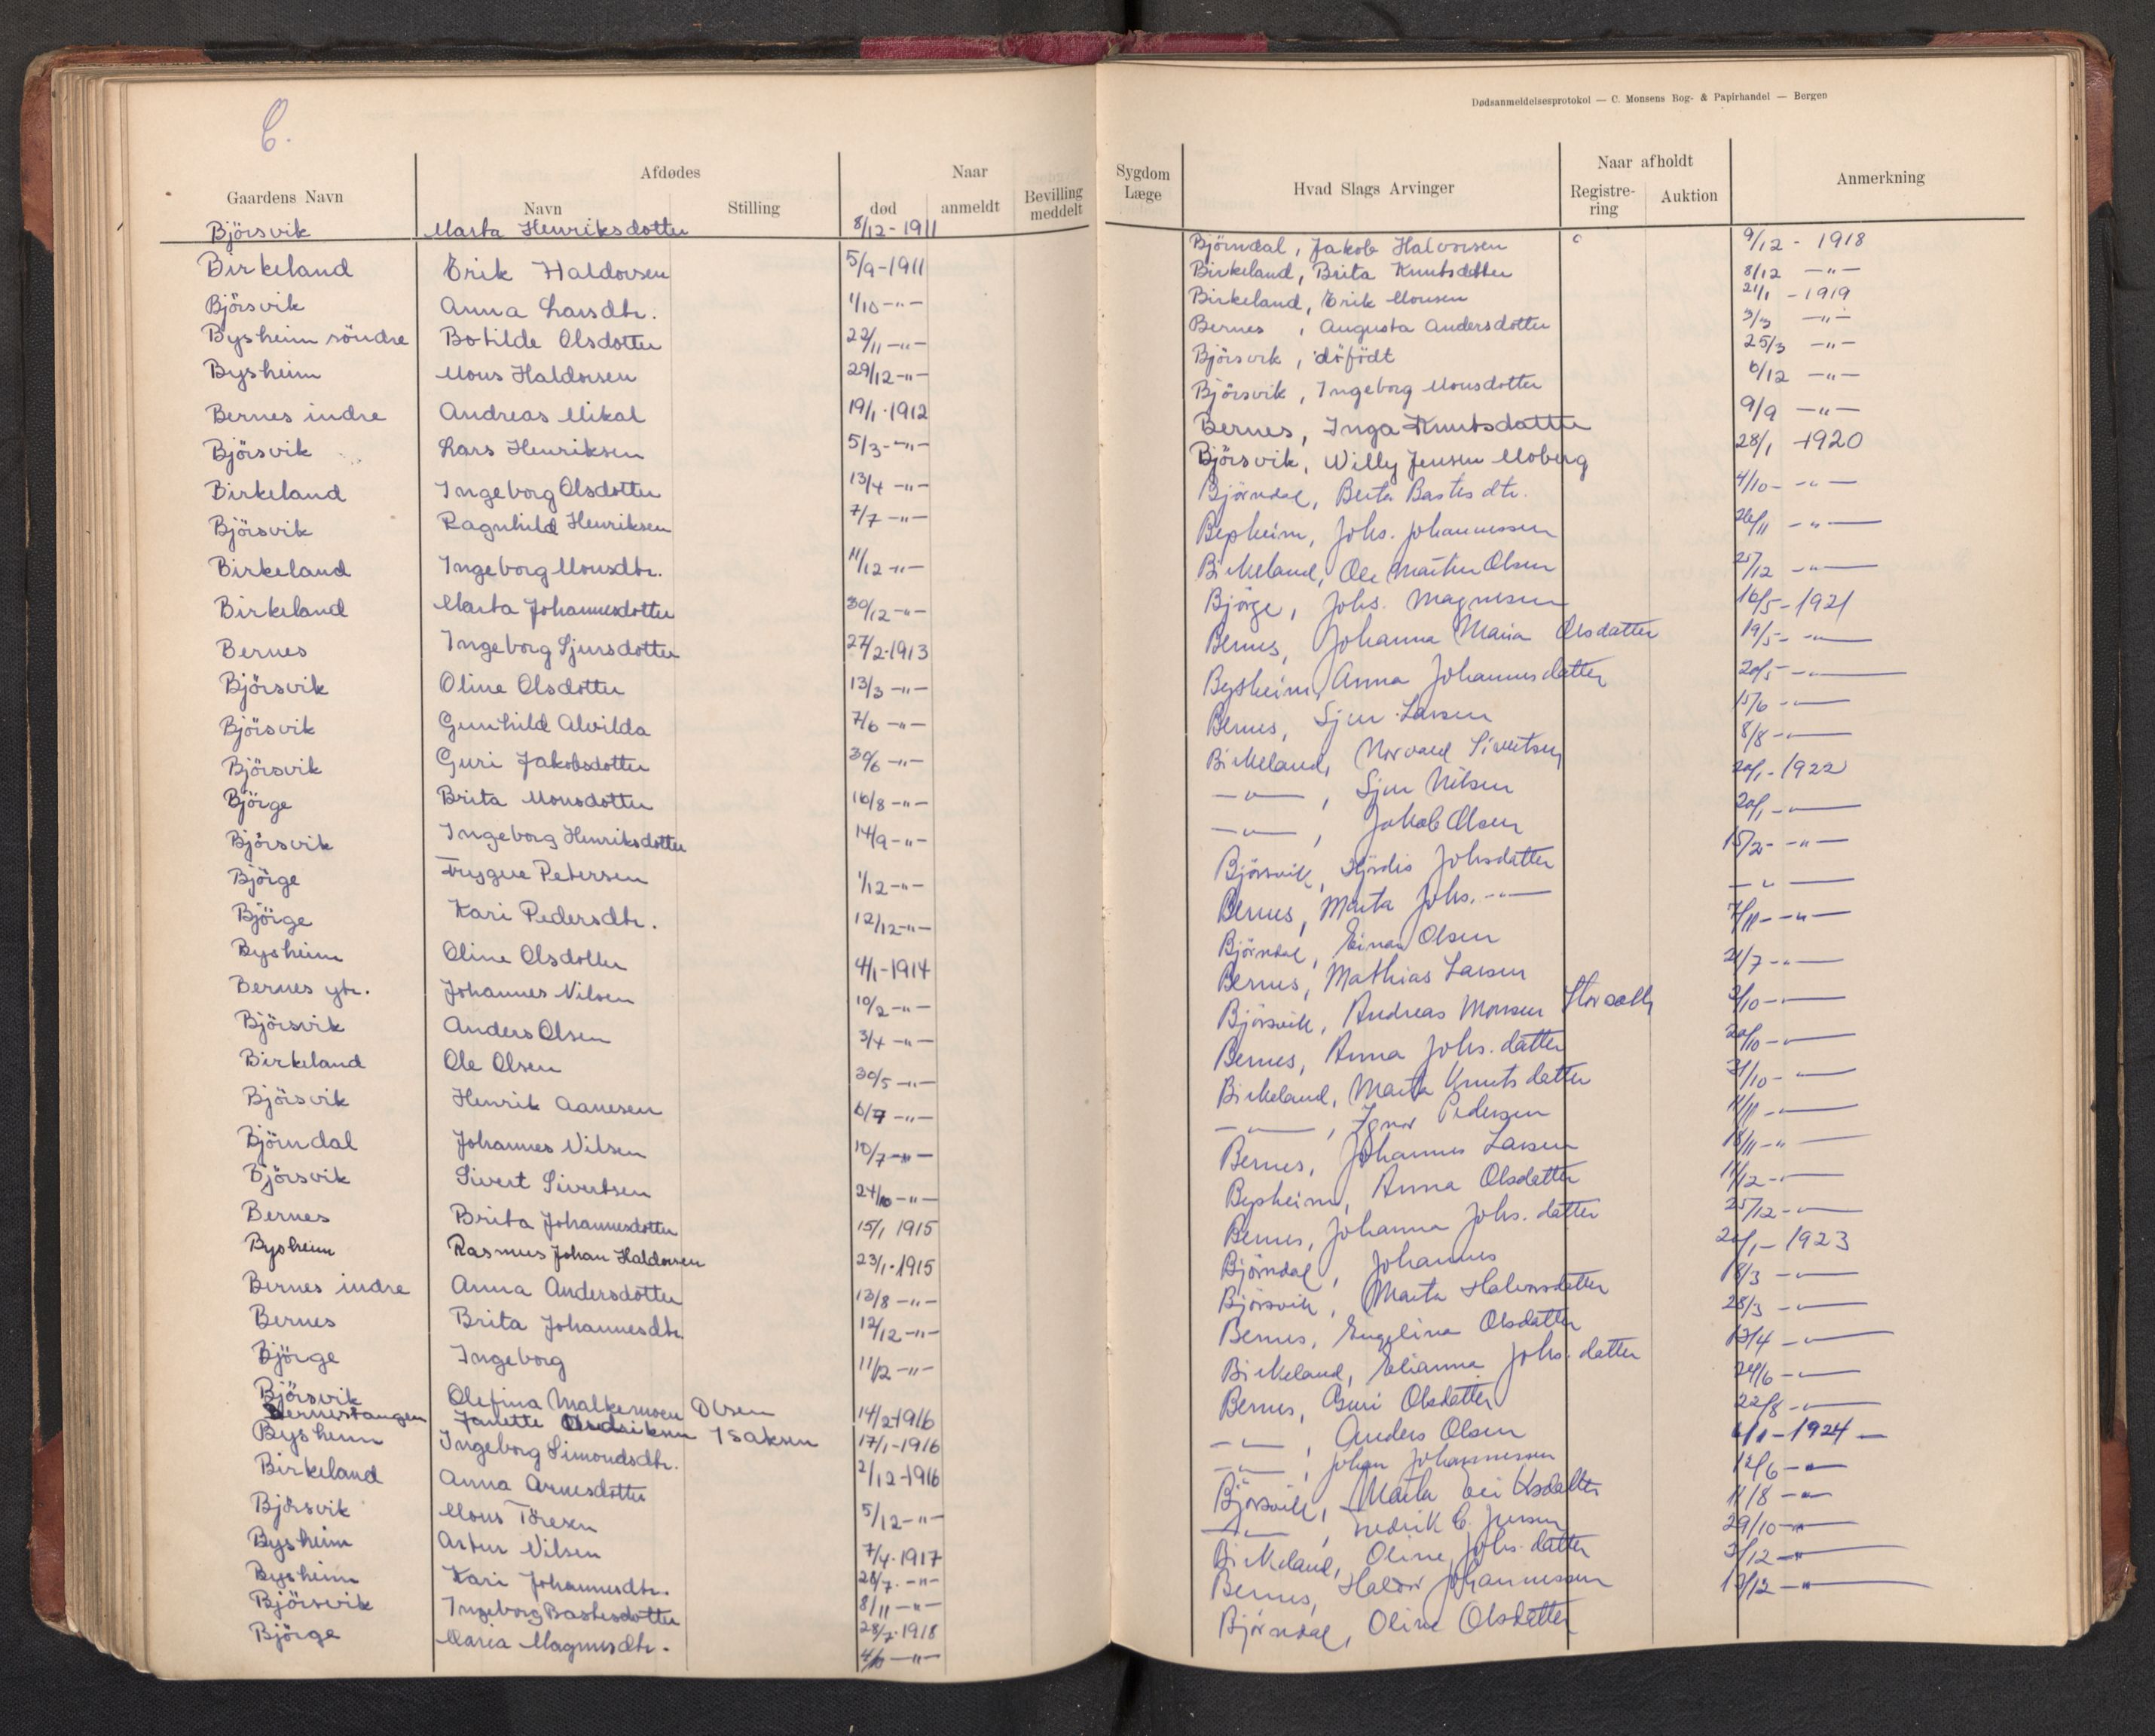 B.
Afdødes
Naar
Gaardens Navn Navn Stilling død anmeldt Bevilling meddelt
Björsvik Marta Henriksdotter 8/12-1911
Birkeland Erik Haldorsen 5/9-1911
Björsvik Anna Larsdtr. 1/10-"-
Bysheim söndre Botilde Olsdotter 22/11-"-
Bysheim Mons Haldorsen 29/12-"-
Bernes indre Andreas Mikal 19/1-1912
Björsvik Lars Henriksen 5/3-"-
Birkeland Ingeborg Olsdotter 13/4-"-
Björsvik Ragnhild Henriksen 7/7-"-
Birkeland Ingeborg Monsdtr. 11/12-"-
Birkeland Marta Johannesdotter 30/12-"-
Bernes Ingeborg Sjursdotter 27/2-1913
Björsvik Oline Olsdotter 13/3-"-
Björsvik Gunhild Alvilda 7/6-"-
Björsvik Guri Jakobsdotter 30/6-"-
Björge Brita Monsdotter 16/8-"-
Björsvik Ingeborg Henriksdotter 14/9-"-
Björge Trygve Petersen 1/12-"-
Björge Kari Pedersdtr. 12/12-"-
Bysheim Oline Olsdotter 4/1-1914
Bernes ytr. Johannes Nilsen 10/2-"-
Björsvik Anders Olsen 3/4-"-
Birkeland Ole Olsen 30/5-"-
Björsvik Henrik Aanesen 6/7-"-
Björndal Johannes Nilsen 10/7-"-
Björsvik Sivert Sivertsen 24/10-"-
Bernes Brita Johannesdotter 15/1 1915
Bysheim Rasmus Johan Haldorsen 23/1-1915
Bernes indre Anna Andersdotter 13/8-"-
Bernes Brita Johannesdtr. 12/12-"-
Björge Ingeborg 11/12-"-
Björsvik Olefina Olsen 14/2-1916
Bernestangen Janette Isaksen 17/1-1916
Bysheim Ingeborg Simondsdtr. 2/12-1916
Birkeland Anna Arnesdotter 5/12-"-
Björsvik Mons Töresen 7/4-1917
Bysheim Artur Nilsen 28/7-"-
Bysheim Kari Johannesdtr. 8/11-"-
Björsvik Ingeborg Bastesdotter 28/7-1918
Björge Maria Magnusdtr. -"-
Dødsanmeldelsesprotokol — C. Monsens Bog- & Papirhandel — Bergen
Naar afholdt
Sygdom Læge Hvad Slags Arvinger Registre-ring Auktion Anmerkning
Björndal, Jakob Halvorsen 9/12-1918
Birkeland, Brita Knutsdotter 8/12-"-
Birkeland, Erik Monsen 21/1-1919
Bernes, Augusta Andersdotter 3/3-"-
Björsvik, döfödt 25/3-"-
Björsvik, Ingeborg Monsdotter 6/12-"-
Bernes, Inga Knutsdatter 9/9-"-
Björsvik, Willy Jensen Moberg 28/1-1920
Björndal, Berta Bastesdtr. 4/10-"-
Bysheim, Johs. Johannessen 26/11-"-
Birkeland, Ole Martin Olsen 25/12-"-
Björge, Johs. Magnesen 16/5-1921
Bernes, Johanna Maria Olsdatter 19/5-"-
Bysheim, Anna Johannesdatter 20/5-"-
Bernes, Sjur Larsen 15/6-"-
Birkeland, Norvald Sivertsen 8/8-"-
-"-, Sjur Nilsen 20/1-1922
-"-, Jakob Olsen 20/1-"-
Björsvik, Hjördis Johsdatter 15/2-"-
Bernes, Marta Johs.-"- -"-
Björndal, Einar Olsen 7/11-"-
Bernes, Mathias Larsen 21/7-"-
Björsvik, Andreas Monsen 2/10-"-
Bernes, Anna Johs.datter 20/10-"-
Birkeland, Marta Knutsdatter 21/10-"-
-"-, Pedersen 11/11-"-
Bernes, Johannes Larsen 18/11-"-
Bysheim, Anna Olsdatter 11/12-"-
Bernes, Johanna Johs.datter 25/12-"-
Björndal, Johannes 20/1-1923
Björsvik, Marta Halvorsdatter 18/3-"-
Bernes, Engelina Olsdatter 28/3-"-
Birkeland, Elianna Johs.datter 13/4-"-
Bernes, Guri Olsdatter 24/6-"-
-"-, Anders Olsen 22/8-"-
-"-, Johan Johannessen 1/1-1924
Björsvik, Marta 12/6-"-
-"-, Fredrik C. Jensen 11/8-"-
Birkeland, Oline Johs.datter 29/10-"-
Bernes, Haldor Johannessen 3/12-"-
Björndal, Oline Olsdatter 13/12-"-